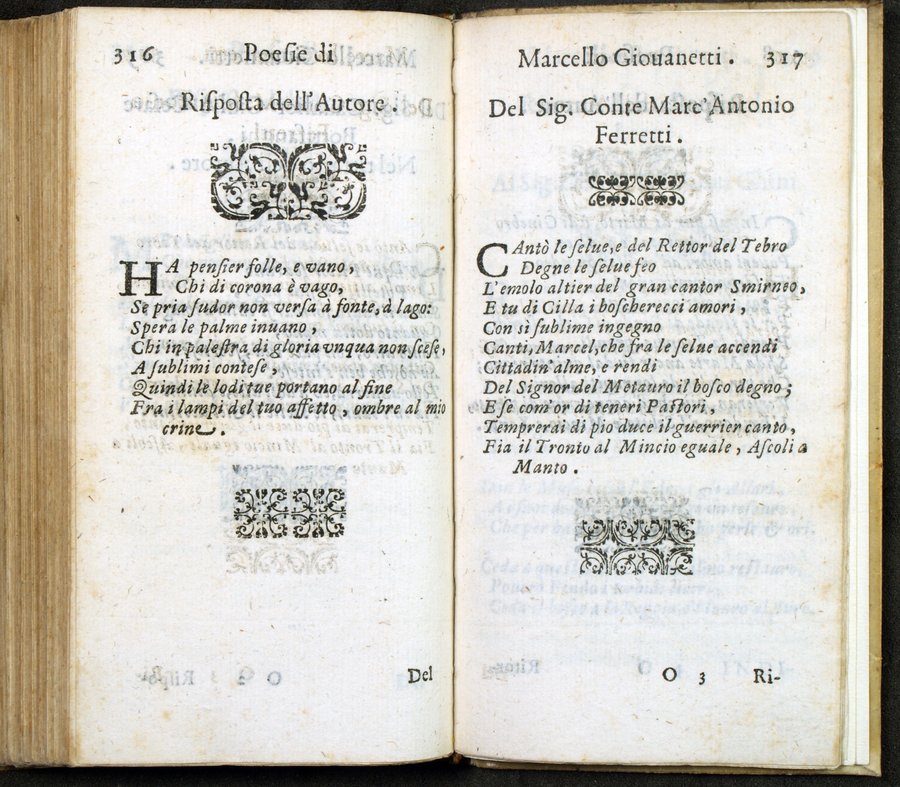 316 Poeſie di
Riſpoſta dell'Autore.
HA penſier folle, e vano,
Chi di corona è vago,
Se pria ſudor non verſa à fonte, à lago:
Spera le palme inuano,
Chi in paleſtra di gloria vnqua non ſceſe,
A ſublimi conteſe,
Quindi le lodi tue portano al fine
Fra i lampi del tuo affetto, ombre al mio
crine.
Del
Marcello Giouanetti. 317
Del Sig. Conte Marc'Antonio
Ferretti.
CAntò le ſelue, e del Rettor del Tebro
Degne le ſelue feo
L'emolo altier del gran cantor Smirneo,
E tu di Cilla i boſcherecci amori,
Con sì ſublime ingegno
Canti, Marcel, che fra le ſelue accendi
Cittadin'alme, e rendi
Del Signor del Metauro il boſco degno;
E ſe com'or di teneri Paſtori,
Temprerai di pio duce il guerrier canto,
Fia il Tronto al Mincio eguale, Aſcoli a
Manto.
O 3 Ri-